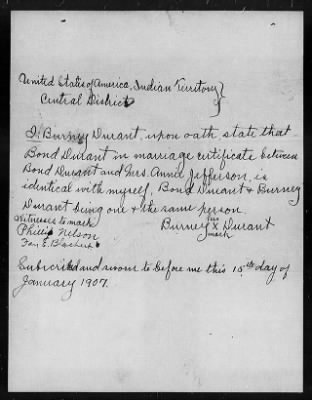 United States of America, Indian Territory }
Central District }
I, Burney Durant, upon oath state that
Bond Durant in marriage certificate between
Bond Durant and Mrs. Annie Jefferson, is
identical with myself, Bond Durant & Burney
Durant being one & the same person
Witnesses to mark
his
Burney X Durant
mark
Phillip Nelson
Fay E.
Subscribed and sworn to before me this 15th day of
January 1907.